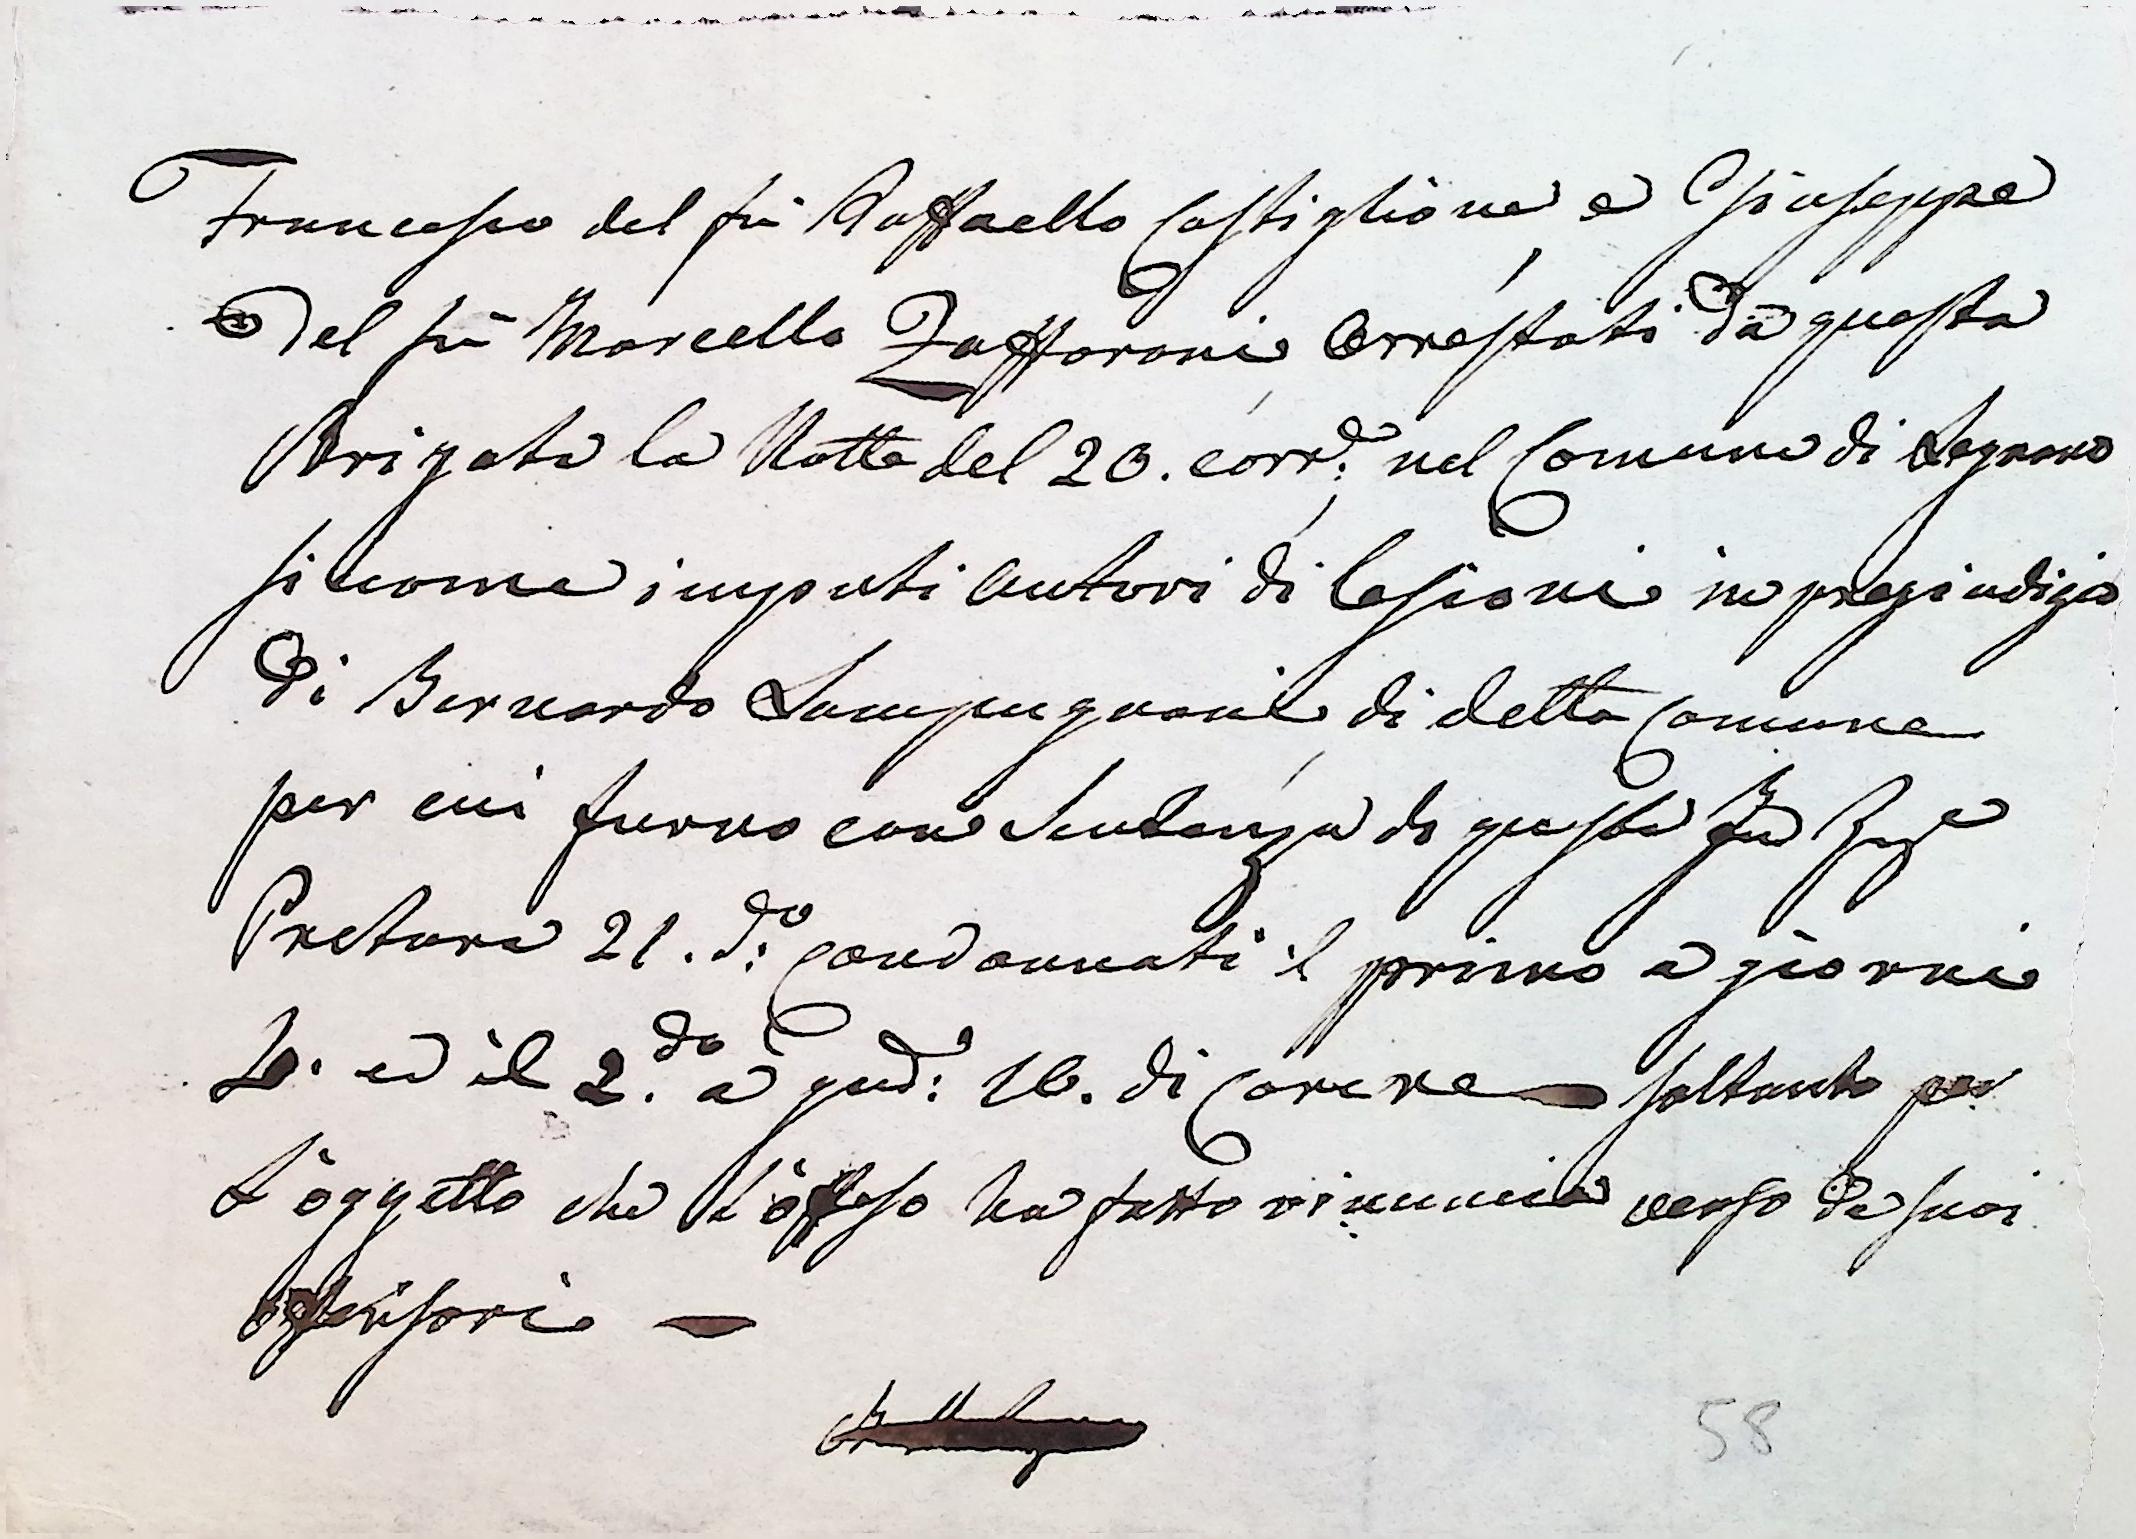 Francesco del fù Raffaello Castiglione e Giuseppe
Del fù Marcello Zaffaroni Arrestati da questa
Brigata la Notte del 20. corr.e nel Comune di Legnano
siccome imputi autori di lesioni in pregiudizio
Di Bernardo Lampugnani di detto Comune
per cui furno con Sentenza di questa
Pretura 21. d.o condannati il primo a giorni
ed il 2.do a 16. di Carcere soltanto per
L'oggetto che L'offeso ha fatto rinuncia verso de suoi
offensori —
58